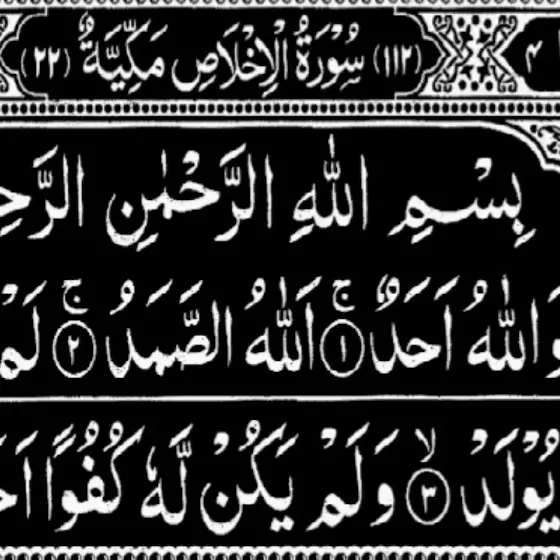 ۴ (۱۱۲) سُوْرَةُ الْاِخْلَاصِ مَكِّيَّةٌ (۲۲)
بِسْمِ اللّٰهِ الرَّحْمٰنِ الرَّحِ
وَاللّٰهُ اَحَدٌ ۚ ۝۱ اَللّٰهُ الصَّمَدُ ۚ ۝۲ لَمْ
يُوْلَدْ ۙ ۝۳ وَلَمْ يَكُنْ لَّهٗ كُفُوًا اَحَ